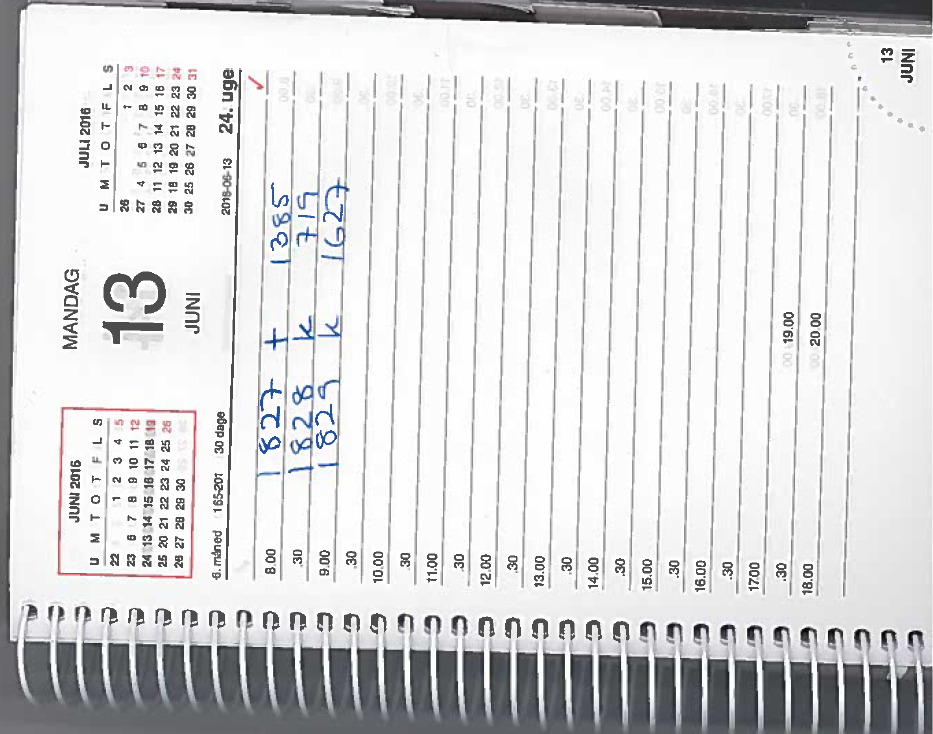 JUNI 2016
U M T O T F L S
22 1 2 3 4 5
23 6 7 8 9 10 11 12
24 13 14 15 16 17 18 19
25 20 21 22 23 24 25 26
26 27 28 29 30
MANDAG
13
JUNI
JULI 2016
U M T O T F L S
26 1 2 3
27 4 5 6 7 8 9 10
28 11 12 13 14 15 16 17
29 18 19 20 21 22 23 24
30 25 26 27 28 29 30 31
6. måned 165-201 30 dage 2016-06-13 24. uge
8.00 1827 + 1385 ✓
.30 1828 k 719
9.00 1829 k 1627
.30
10.00
.30
11.00
.30
12.00
.30
13.00
.30
14.00
.30
15.00
.30
16.00
.30
1700
.30 19.00
18.00 20.00
13
JUNI